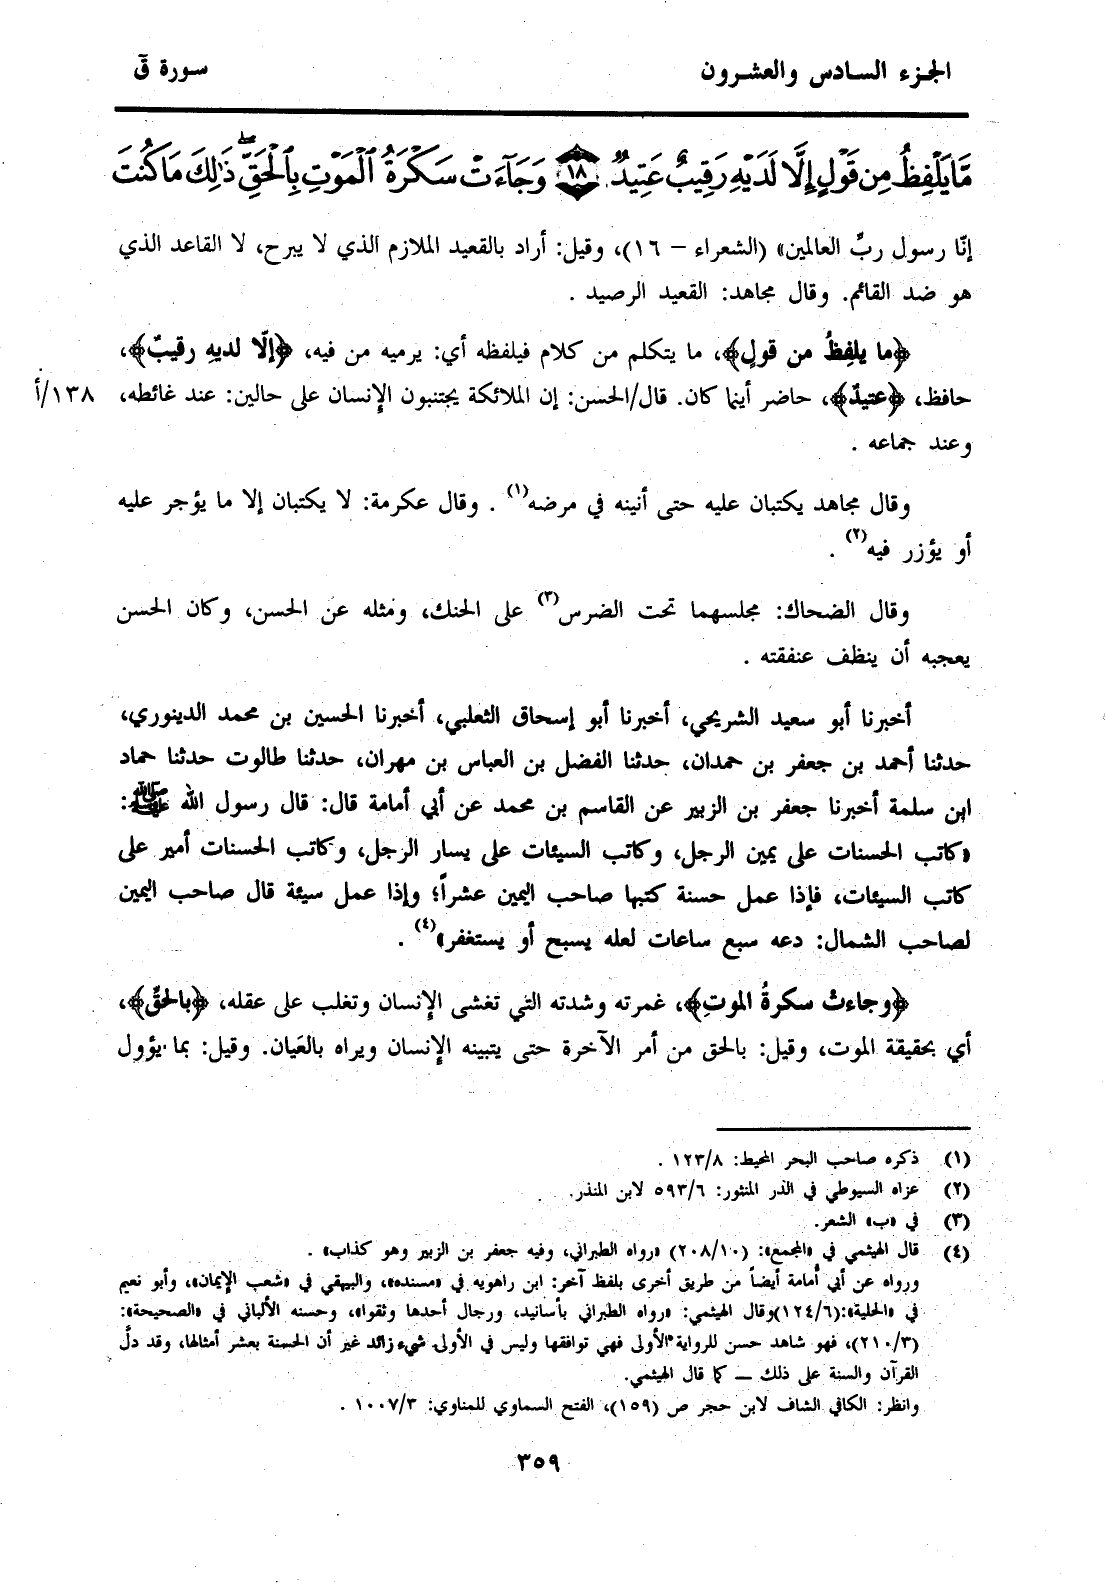 الجزء السادس والعشرون
سورة قٓ
مَّا يَلْفِظُ مِن قَوْلٍ إِلَّا لَدَيْهِ رَقِيبٌ عَتِيدٌ ﴿١٨﴾ وَجَآءَتْ سَكْرَةُ ٱلْمَوْتِ بِٱلْحَقِّ ۖ ذَٰلِكَ مَا كُنتَ
إنّا رسول ربِّ العالمين» (الشعراء – ١٦)، وقيل: أراد بالقعيد الملازم الذي لا يبرح، لا القاعد الذي
هو ضد القائم. وقال مجاهد: القعيد الرصيد .
﴿ما يلفِظُ من قولٍ﴾، ما يتكلم من كلام فيلفظه أي: يرميه من فيه، ﴿إلّا لديهِ رقيبٌ﴾،
حافظ، ﴿عتيدٌ﴾، حاضر أينما كان. قال/الحسن: إن الملائكة يجتنبون الإنسان على حالين: عند غائطه، ١٣٨/أ
وعند جماعه .
وقال مجاهد يكتبان عليه حتى أنينه في مرضه(١) . وقال عكرمة: لا يكتبان إلا ما يؤجر عليه
أو يؤزر فيه(٢) .
وقال الضحاك: مجلسهما تحت الضرس(٣) على الحنك، ومثله عن الحسن، وكان الحسن
يعجبه أن ينظف عنفقته .
أخبرنا أبو سعيد الشريحي، أخبرنا أبو إسحاق الثعلبي، أخبرنا الحسين بن محمد الدينوري،
حدثنا أحمد بن جعفر بن حمدان، حدثنا الفضل بن العباس بن مهران، حدثنا طالوت حدثنا حماد
ابن سلمة أخبرنا جعفر بن الزبير عن القاسم بن محمد عن أبي أمامة قال: قال رسول الله ﷺ:
«كاتب الحسنات على يمين الرجل، وكاتب السيئات على يسار الرجل، وكاتب الحسنات أمير على
كاتب السيئات، فإذا عمل حسنة كتبها صاحب اليمين عشراً؛ وإذا عمل سيئة قال صاحب اليمين
لصاحب الشمال: دعه سبع ساعات لعله يسبح أو يستغفر»(٤) .
﴿وجاءتْ سكرةُ الموتِ﴾، غمرته وشدته التي تغشى الإنسان وتغلب على عقله، ﴿بالحقِّ﴾،
أي بحقيقة الموت، وقيل: بالحق من أمر الآخرة حتى يتبينه الإنسان ويراه بالعَيان. وقيل: بما يؤول
(١) ذكره صاحب البحر المحيط: ١٢٣/٨ .
(٢) عزاه السيوطي في الدر المنثور: ٥٩٣/٦ لابن المنذر.
(٣) في «ب» الشعر.
(٤) قال الهيثمي في «المجمع»: (٢٠٨/١٠) «رواه الطبراني، وفيه جعفر بن الزبير وهو كذاب» .
ورواه عن أبي أمامة أيضاً من طريق أخرى بلفظ آخر: ابن راهويه في «مسنده»، والبيهقي في «شعب الإيمان»، وأبو نعيم
في «الحلية»:(١٢٤/٦)وقال الهيثمي: «رواه الطبراني بأسانيد، ورجال أحدها وثقوا»، وحسنه الألباني في «الصحيحة»:
(٢١٠/٣)، فهو شاهد حسن للرواية الأولى فهي توافقها وليس في الأولى شيء زائد غير أن الحسنة بعشر أمثالها، وقد دلَّ
القرآن والسنة على ذلك ــ كما قال الهيثمي.
وانظر: الكافي الشاف لابن حجر ص (١٥٩)، الفتح السماوي للمناوي: ١٠٠٧/٣ .
٣٥٩